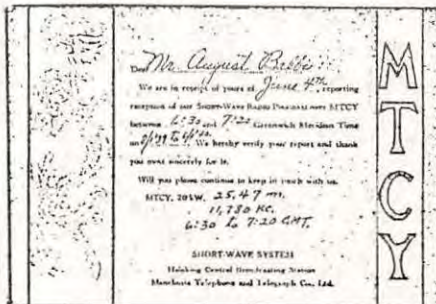 Dear Mr. August
We are in receipt of yours of June 4th, reporting
reception of our SHORT-WAVE RADIO PROGRAM over MTCY
between 6:30 and 7:20 Greenwich Meridian Time
on We hereby verify your report and thank
you most sincerely for it.
Will you please continue to keep in touch with us.
MTCY, 20 kW. 25.47 m.
11,780 KC.
6:30 to 7:20 GMT.
SHORT-WAVE SYSTEM
Hsinking Central Broadcasting Station
Manchuria Telephone and Telegraph Co., Ltd.
MTCY